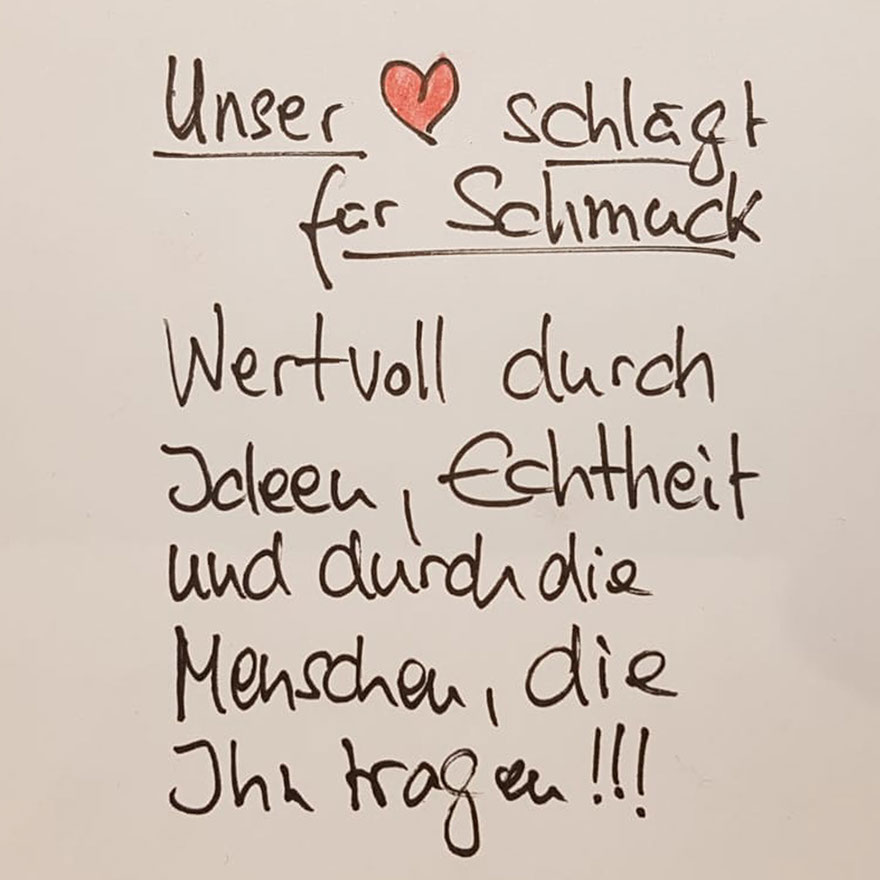 Unser ❤ schlägt
für Schmuck
Wertvoll durch
Ideen, Echtheit
und durch die
Menschen, die
Ihn tragen!!!